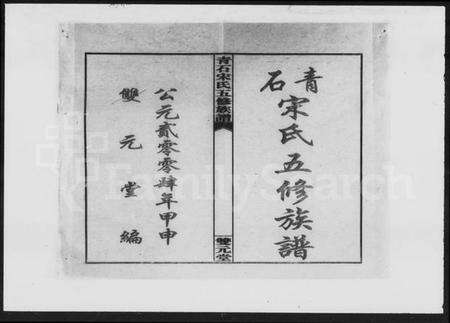 青石
宋氏五修族譜
青石宋氏五修族譜
雙元堂
公元貳零零肆年甲申
雙元堂編
FamilySearch